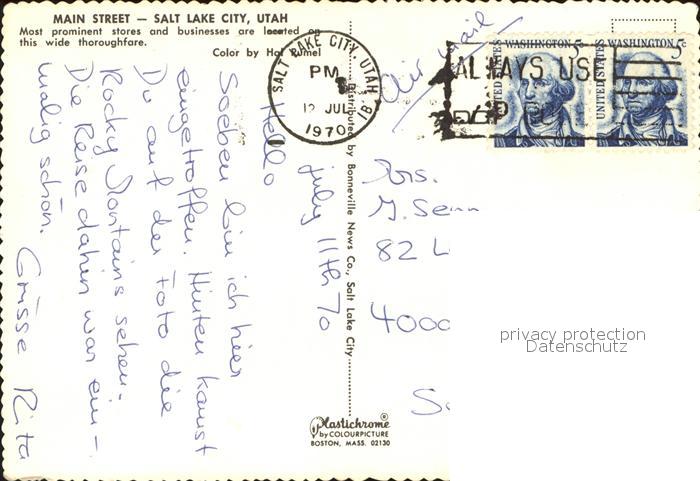 MAIN STREET — SALT LAKE CITY, UTAH
Most prominent stores and businesses are located on
this wide thoroughfare.
Color by Hal Rumel
SALT LAKE CITY, UTAH
PM
12 JUL
1970
1B
ALWAYS USE
ZIP CODE
UNITED STATES
WASHINGTON 5c
UNITED STATES
WASHINGTON 5c
Air mail
Hello
july 11th 70
Soeben bin ich hier
eingetroffen. Hinten kannst
Du auf der Foto die
Rocky Montains sehen.
Die Reise dahin war ein-
malig schön.
Grüsse Rita
Distributed by Bonneville News Co., Salt Lake City
Mrs.
M. Senn
82 L
4000
S
Plastichrome®
by COLOURPICTURE
BOSTON, MASS. 02130
privacy protection
Datenschutz